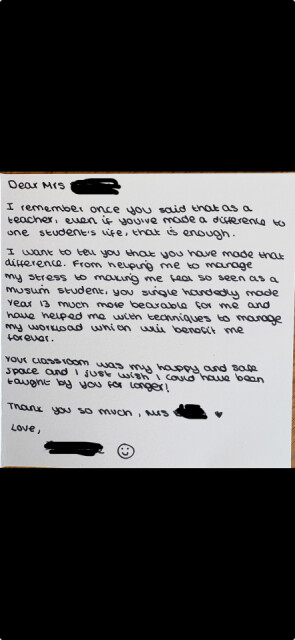 Dear Mrs
I remember once you said that as a
teacher, even if you've made a difference to
one student's life, that is enough.
I want to tell you that you have made that
difference. From helping me to manage
my stress to making me feel so seen as a
muslim student, you single handedly made
Year 13 much more bearable for me and
have helped me with techniques to manage
my workload which will benefit me
forever.
Your classroom was my happy and safe
space and I just wish I could have been
taught by you for longer!
Thank you so much, Mrs ♥
Love,